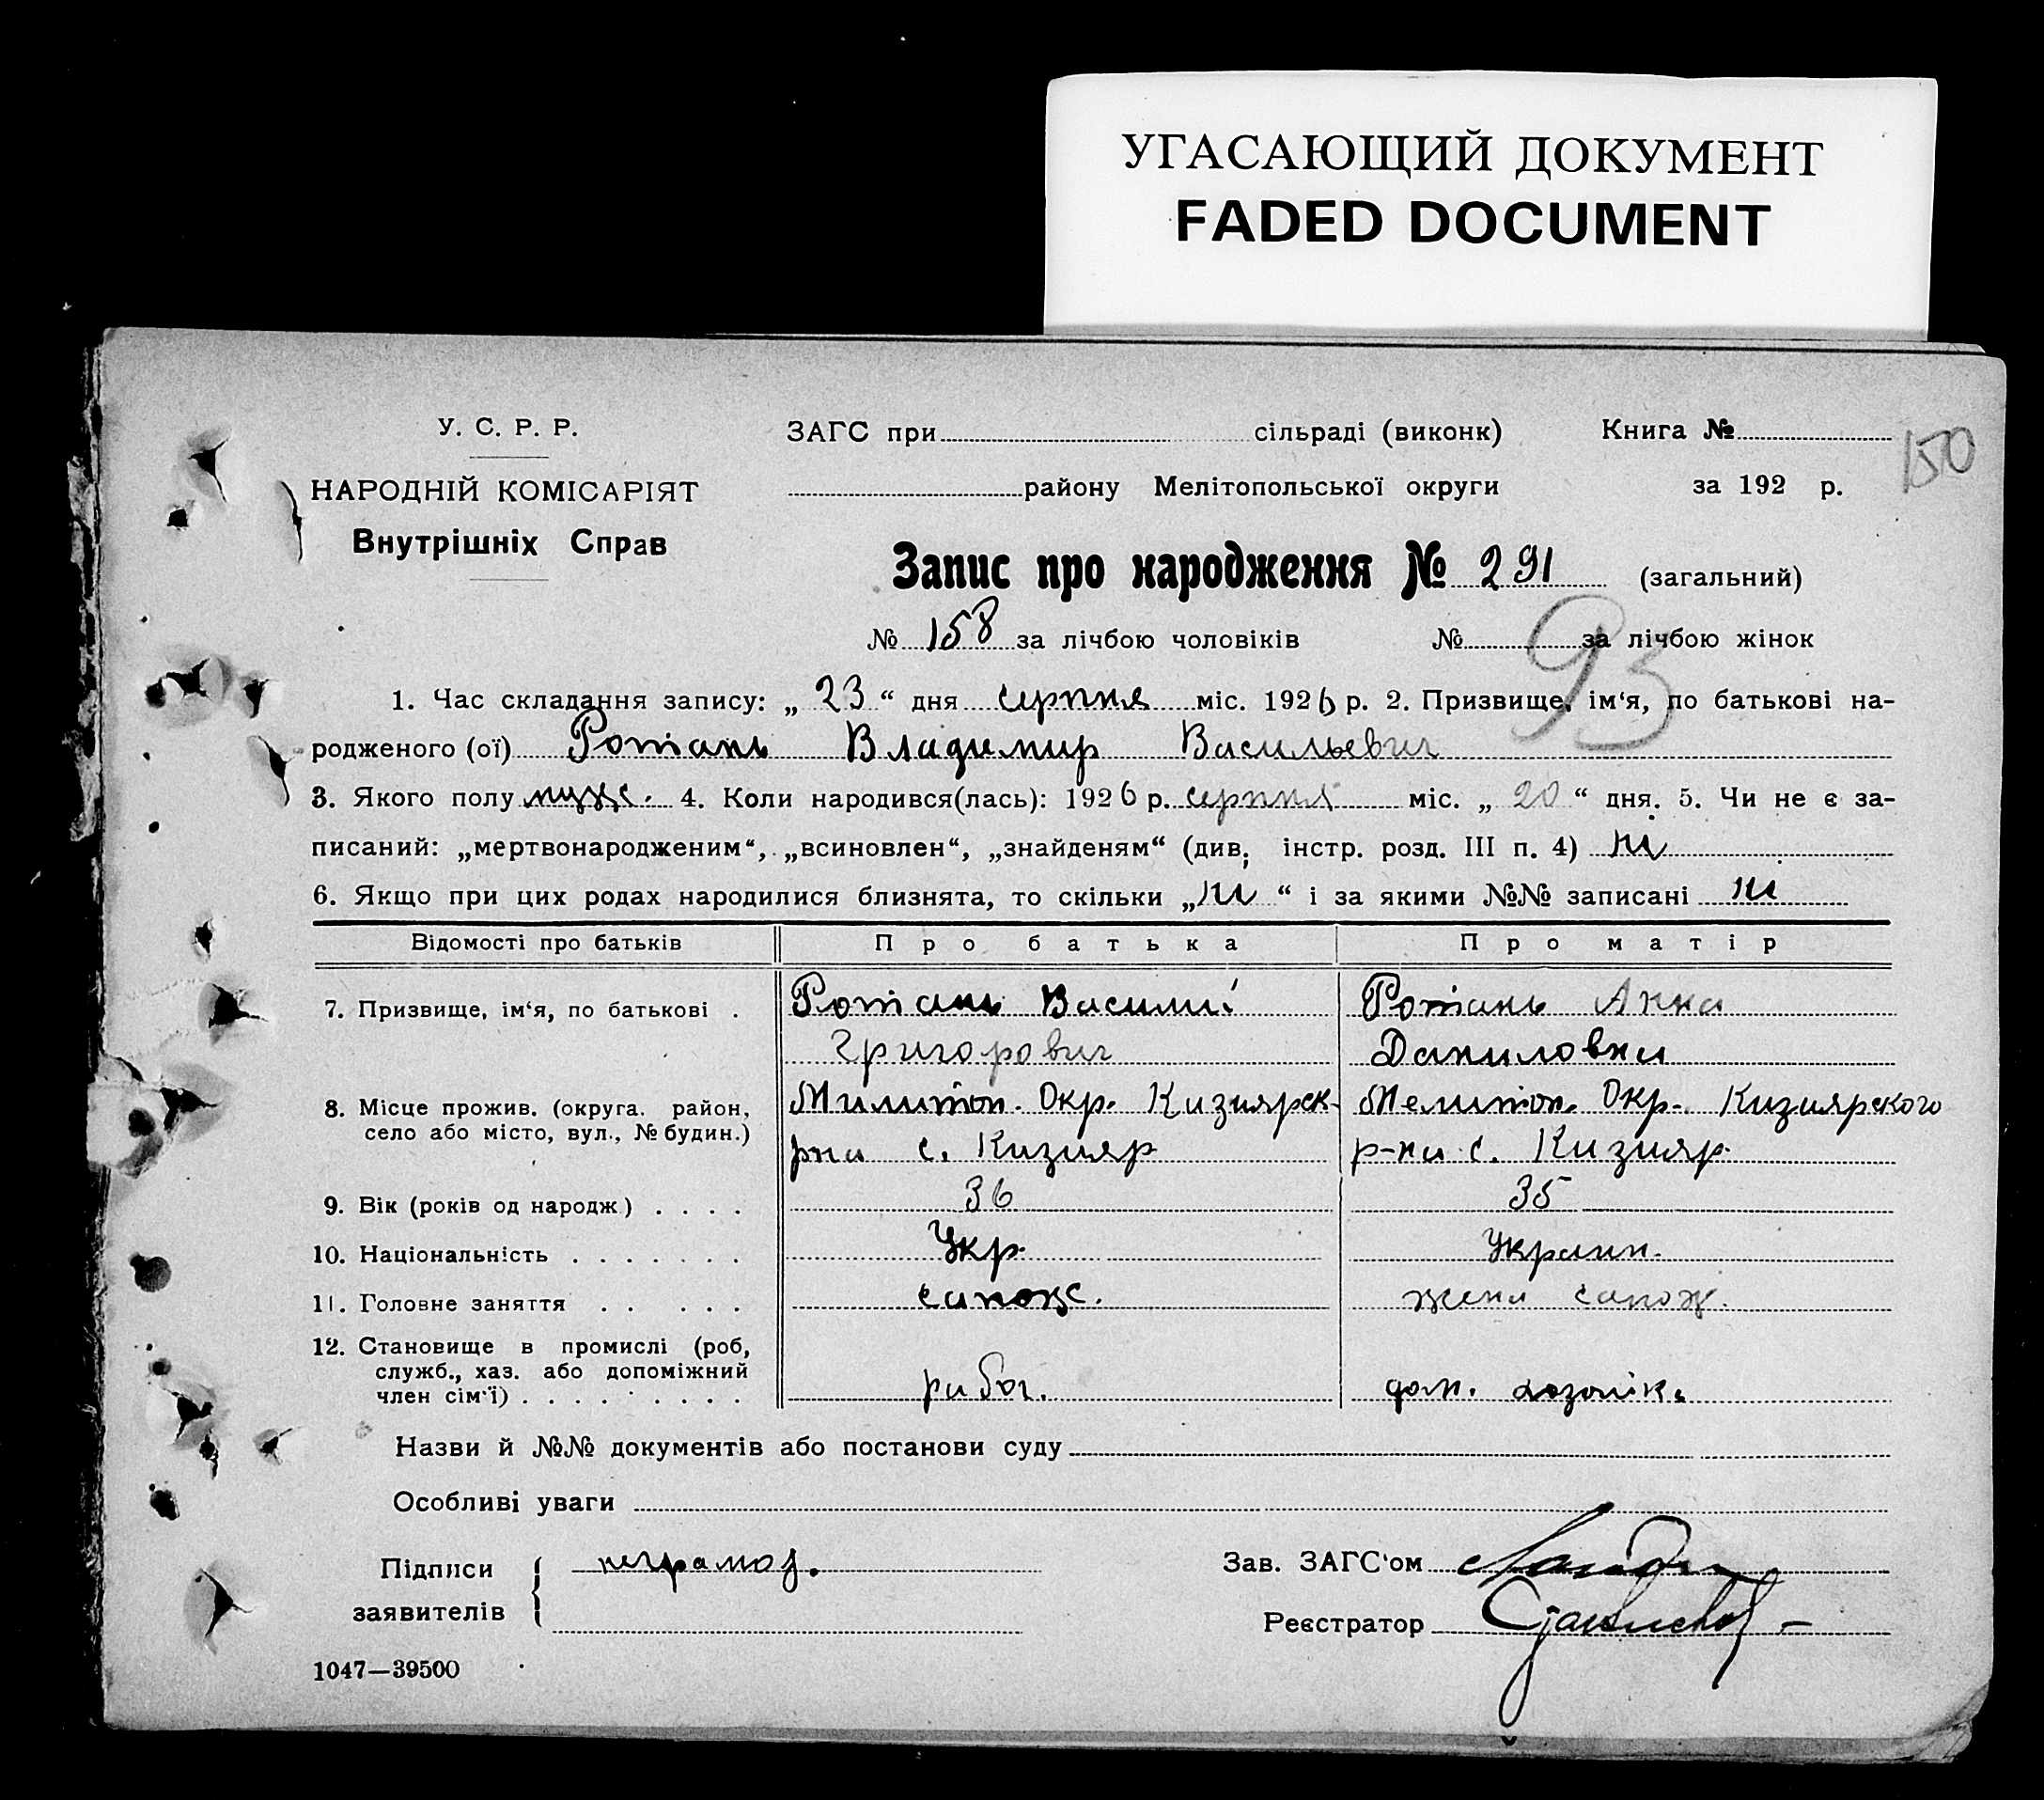 УГАСАЮЩИЙ ДОКУМЕНТ
FADED DOCUMENT
У. С. Р. Р.
НАРОДНІЙ КОМІСАРІЯТ
Внутрішніх Справ
ЗАГС при сільраді (виконк)
Книга №
150
району Мелітопольської округи
за 192 р.
Запис про народження № 291 (загальний)
№ 158 за лічбою чоловіків № за лічбою жінок
93
1. Час складання запису: „ 23 “ дня серпня міс. 1926 р. 2. Призвище, ім‘я, по батькові на-
родженого (ої) Ротань Владимир Васильевич
3. Якого полу мужс. 4. Коли народився(лась): 1926 р. серпня міс. „ 20 “ дня. 5. Чи не є за-
писаний: „мертвонародженим“, „всиновлен“, „знайденям“ (див. інстр. розд. III п. 4) ні
6. Якщо при цих родах народилися близнята, то скільки „ ні “ і за якими №№ записані ні
Відомості про батьків Про батька Про матір
7. Призвище, ім‘я, по батькові . Ротань Василий Ротань Анна
Григорович Даниловна
8. Місце прожив. (округа. район, Милитоп. Окр. Кизиярск- Мелитоп. Окр. Кизиярского
село або місто, вул., № будин.) рна с. Кизияр р-на с. Кизияр.
9. Вік (років од народж) . . . . 36 35
10. Національність . . . . . . . Укр. Украин.
11. Головне заняття . . . . . сапож. жена сапож.
12. Становище в промислі (роб,
служб., хаз. або допоміжний
член сім‘ї) . . . . . . . . рабоч. дом. хозяйк.
Назви й №№ документів або постанови суду
Особливі уваги
Підписи
заявителів
неграмот.
Зав. ЗАГС‘ом
Реєстратор
1047—39500